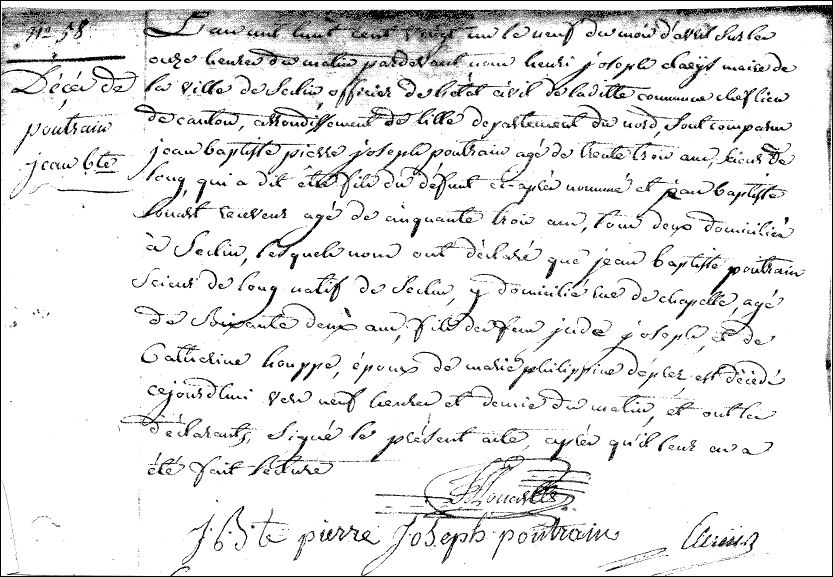 N° 58
Décès de
poutrain
jean bte
L'an mil huit cent vingt un le neuf du mois d'avril sur les
onze heures du matin pardevant nous henri joseph maire de
la ville de Seclin officier de l'état civil de la ville commune chef lieu
de canton, arrondissement de lille departement du nord, sont comparus
jean baptiste pierre joseph poutrain agé de trente trois ans, Scieur de
long, qui a dit être fils du défunt ci-après nommé et jean baptiste
agé de cinquante trois ans, tous deux domiciliés
à Seclin, lesquels nous ont déclaré que jean baptiste poutrain
Scieur de long natif de Seclin, y domicilié rue de chapelle, agé
de Soixante deux ans, fils de feu jude joseph, et de
Catherine houppe, époux de marie philippine déprez, est décédé
cejourd'hui vers neuf heures et demie du matin, et ont les
déclarants, Signé le présent acte, après qu'il leur en a
été fait lecture
J. B. te pierre Joseph poutrain